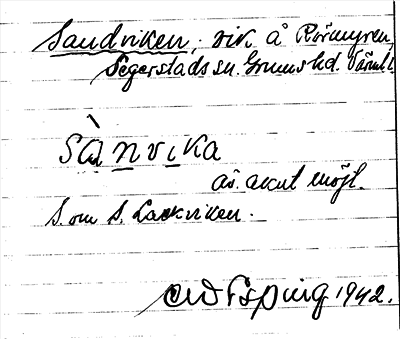 Sandviken, vik å Rörmyren,
Segerstads sn. Grums hd. Värml.
sànvika
äv. akut möjl.
S. om S. Lackviken.
1942.